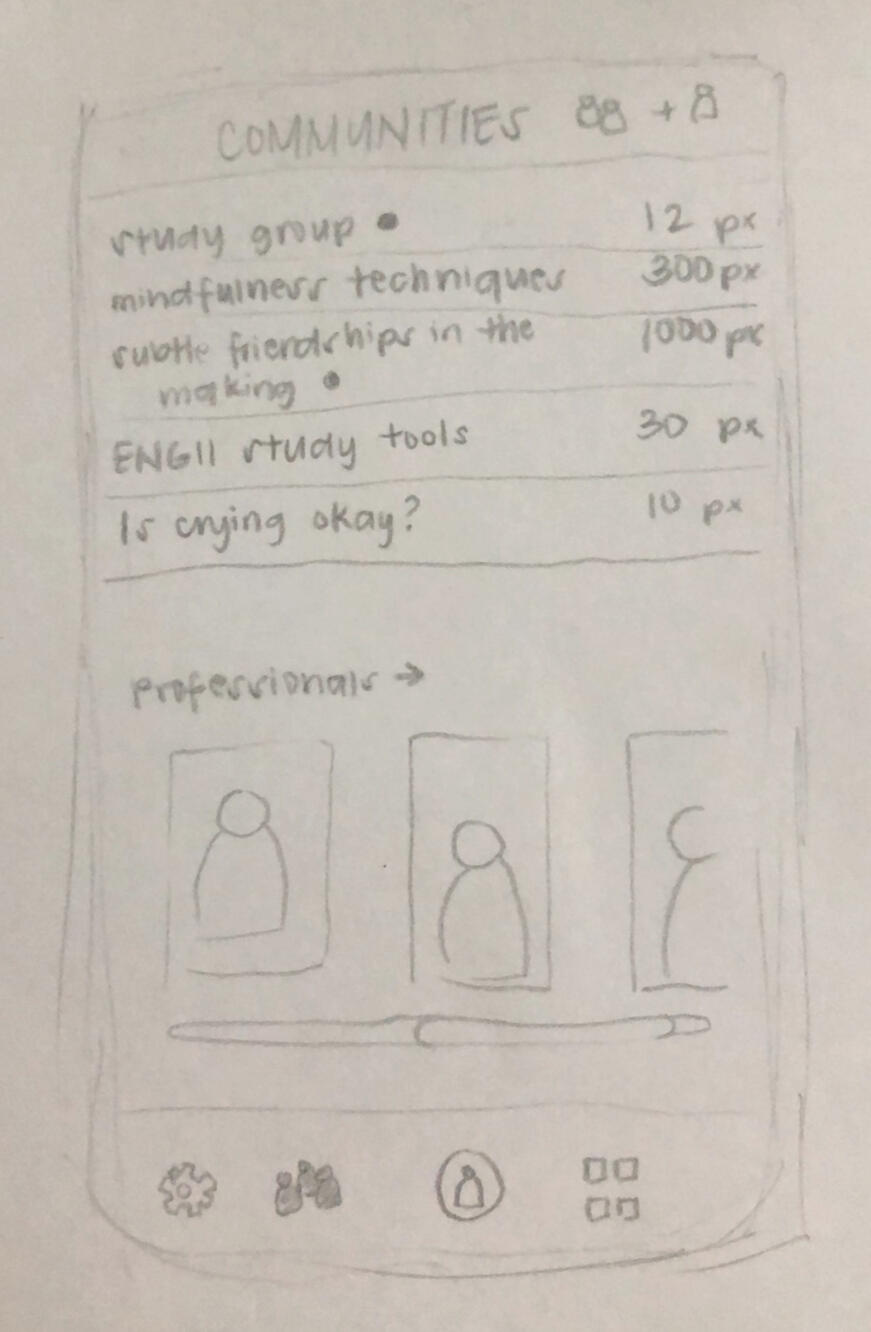 COMMUNITIES +
study group • 12 px
mindfulness techniques 300 px
subtle friendships in the 1000 px
making •
ENG11 study tools 30 px
Is crying okay? 10 px
Professionals →